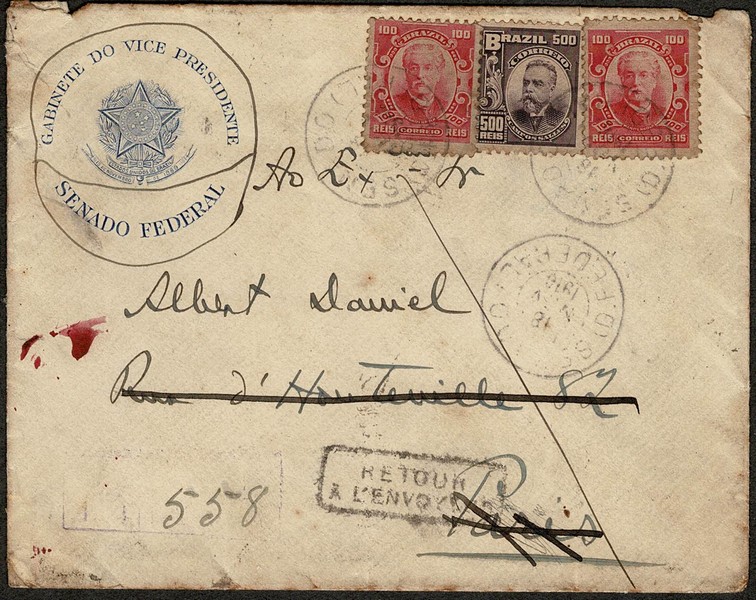 GABINETE DO VICE PRESIDENTE
SENADO FEDERAL
100 BRAZIL 100
REIS CORREIO REIS
BRAZIL 500
CORREIO
500 REIS
100 BRAZIL 100
100 100
REIS CORREIO REIS
Ao Ex Sr
Albert Daniel
d'Houteville 82
Paris
RETOUR
À L'ENVOYEUR
558
FEDERAL
1916